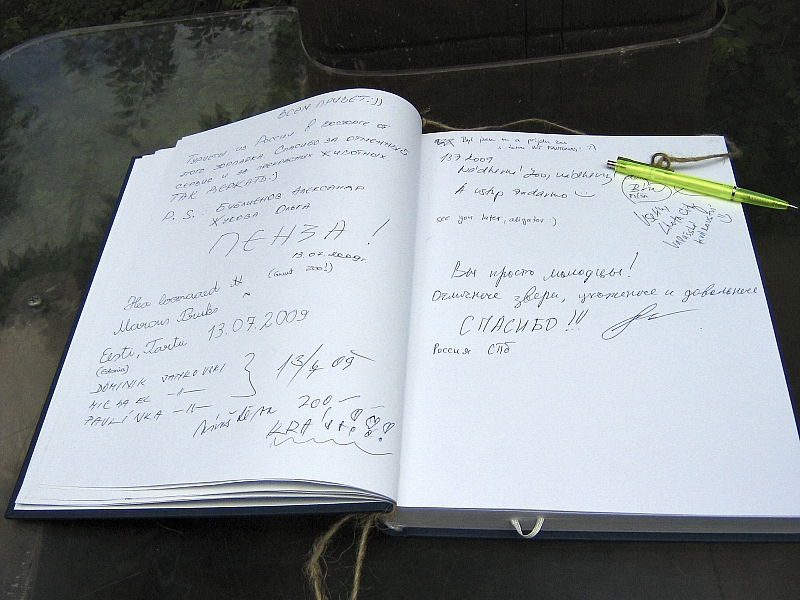 ВСЕМ ПРИВЕТ:))
Туристы из России в восторге от
этого зоопарка Спасибо за отменный
сервис и за прекрасных животных
ТАК ДЕРЖАТЬ:)
P.S.: Бубленов Александр
Жукова Ольга
ПЕНЗА!
13.07.2009г.
(Great zoo!)
Hea loomaaed
Marcus
Eesti, Tartu 13.07.2009
(Estonia)
DOMINIK JANKOVSKI
MICHAEL -II-
PAVLÍNKA -II-
13/7 09
200
KRÁ
Byl jsem tu a
13.7.2009
Nádherný ZOO,
A vstup zadarmo
see you later, aligator :)
Вы просто молодцы!
Отличные звери, ухоженные и довольные
СПАСИБО!!!
Россия СПб